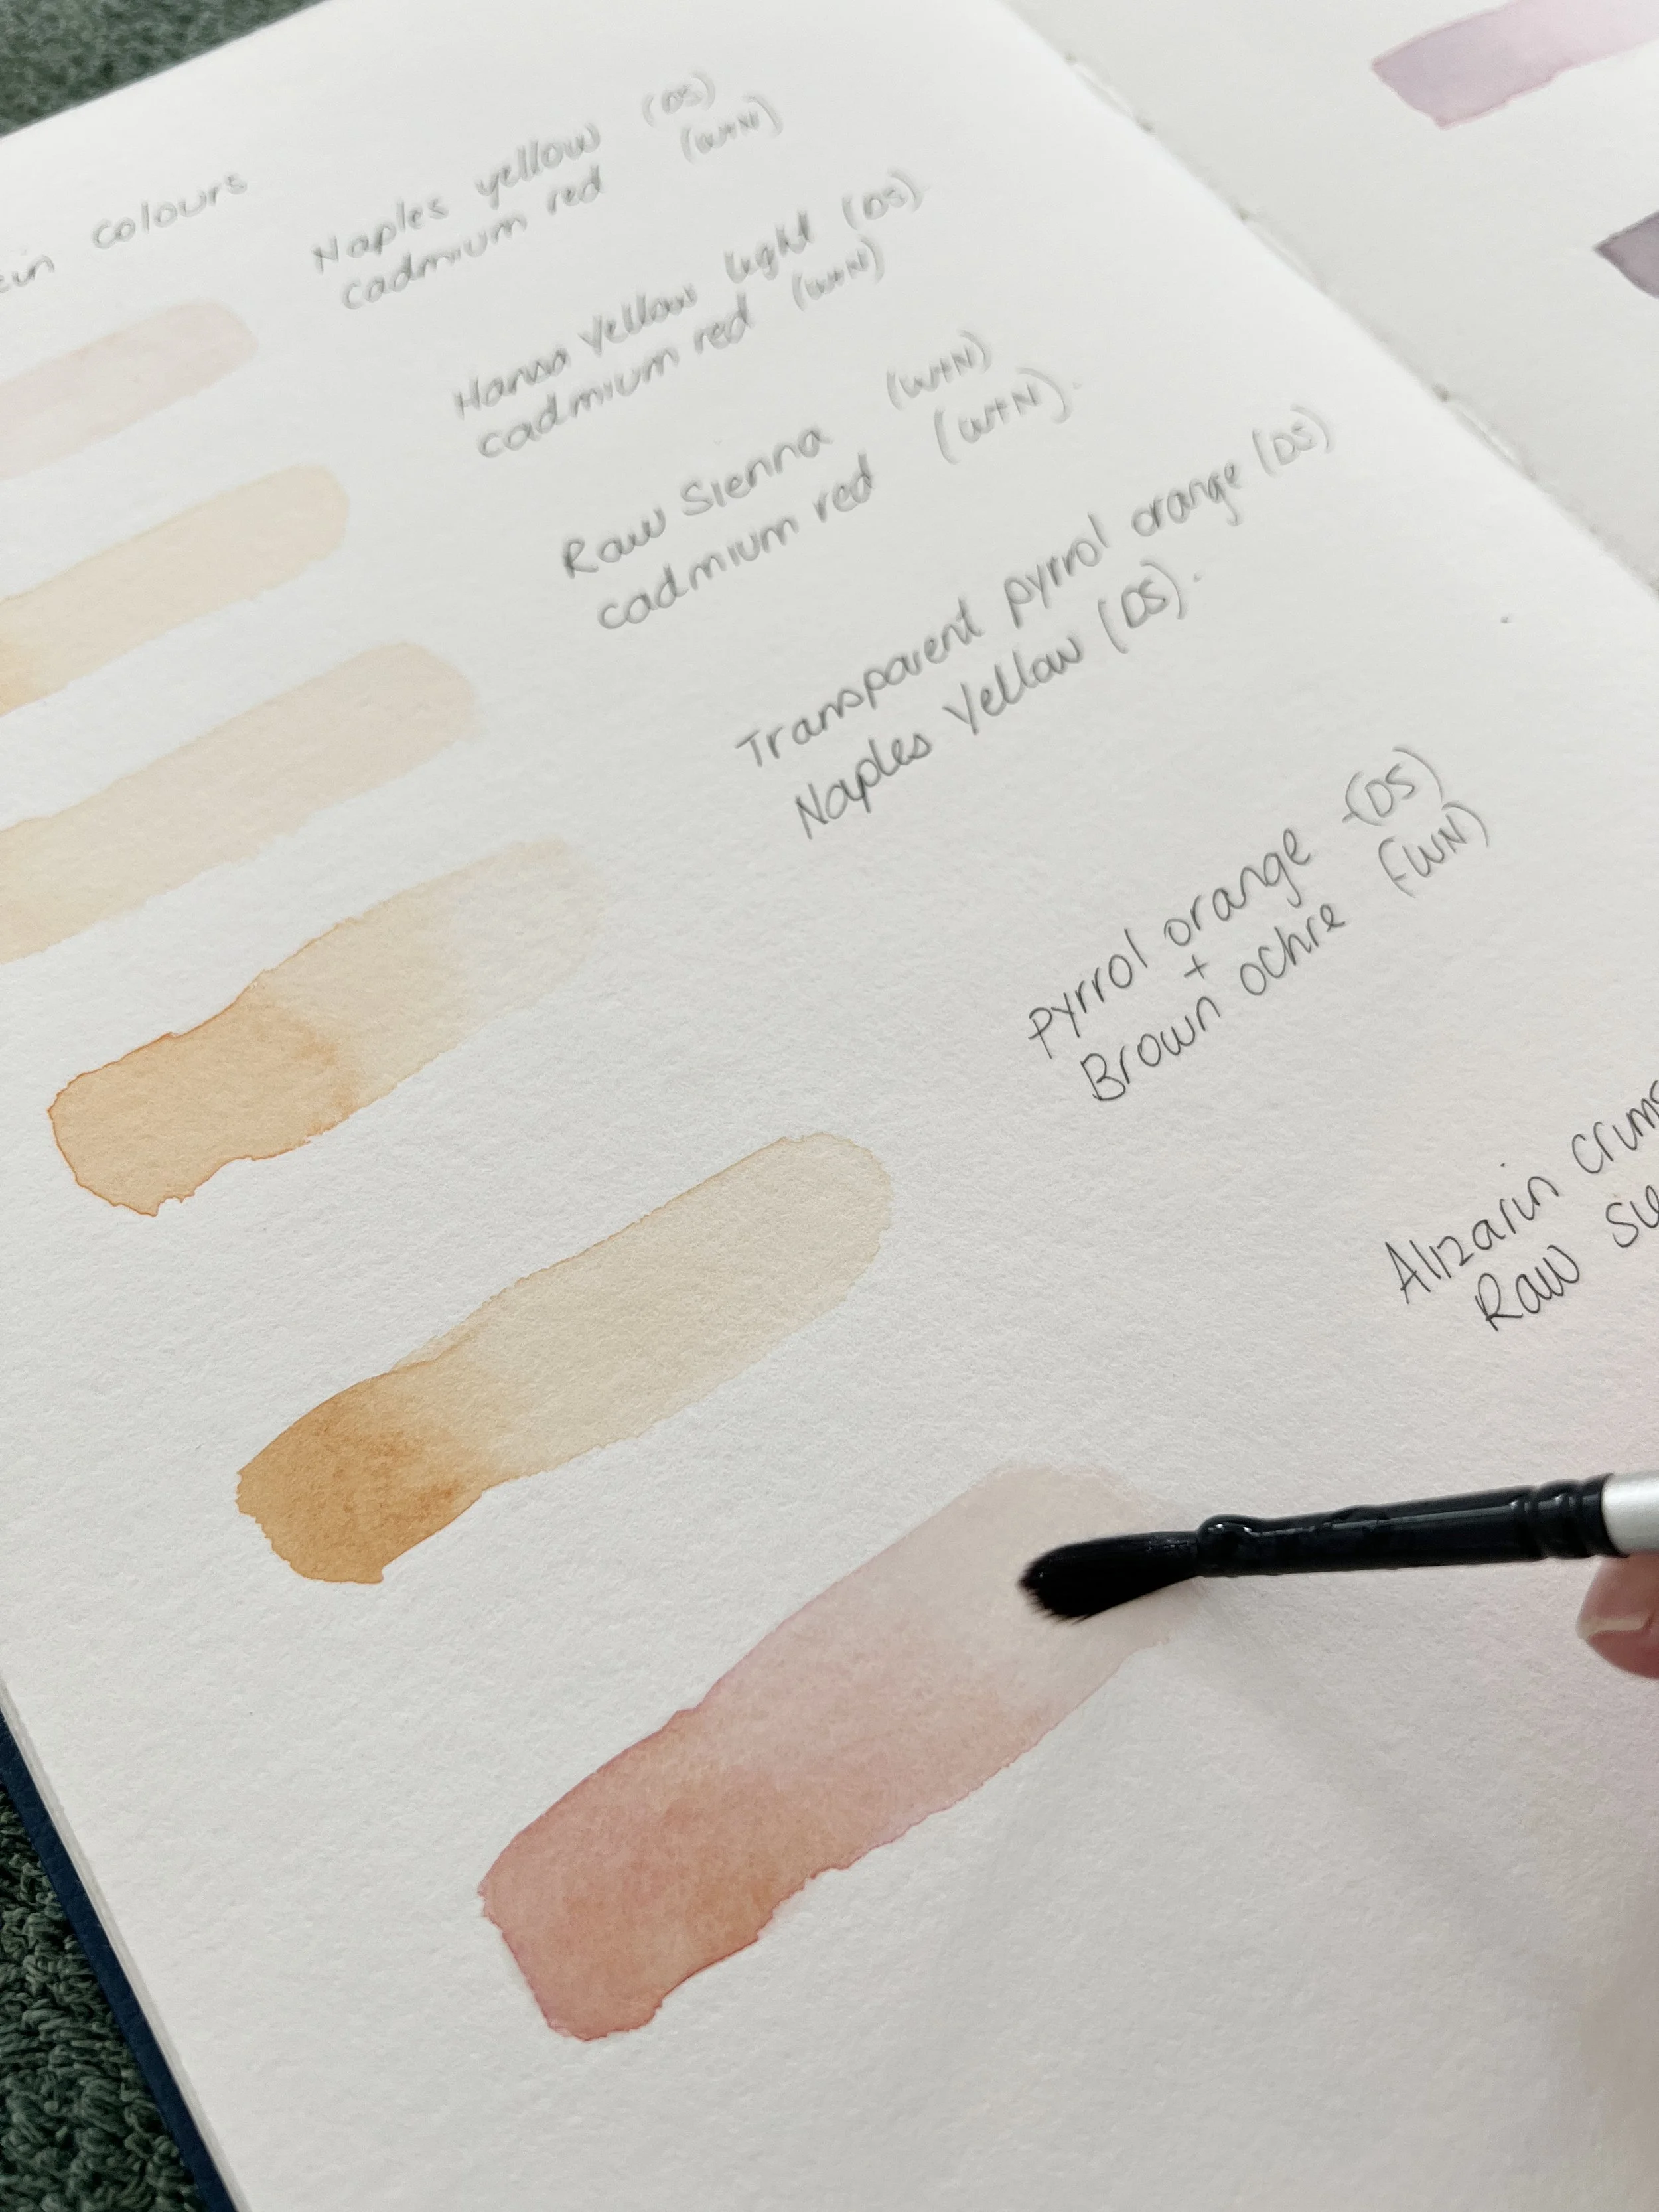 colours
Naples yellow (DS)
cadmium red (W+N)
Hansa Yellow light (DS)
cadmium red (W+N)
Raw Sienna (W+N)
cadmium red (W+N).
Transparent pyrrol orange (DS)
Naples Yellow (DS).
Pyrrol orange -(DS)
+
Brown ochre (-WN)
Alizarin
Raw